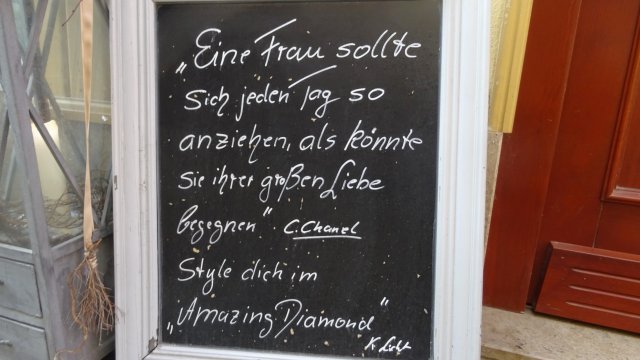 „Eine Frau sollte
sich jeden Tag so
anziehen, als könnte
sie ihrer großen Liebe
begegnen" C. Chanel
Style dich im
„Amazing Diamond"